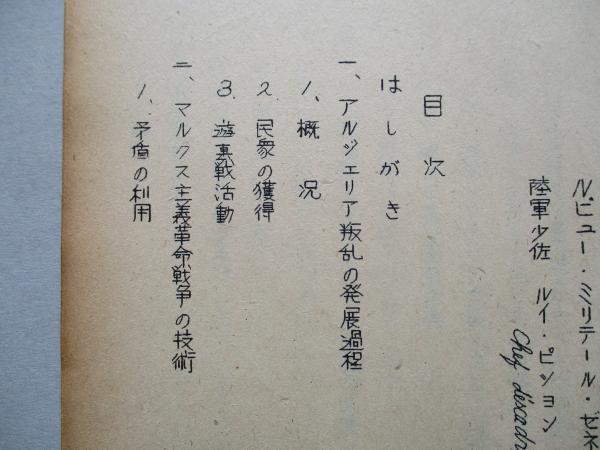 ルビュー・ミリテール・ゼネ
陸軍少佐 ルイ・ピション
Chef d'éscadr
目次
はしがき
一、アルジェリア叛乱の発展過程
1、概況
2. 民衆の獲得
3. 遊裏戦活動
二、マルクス主義革命戦争の技術
1、矛盾の利用